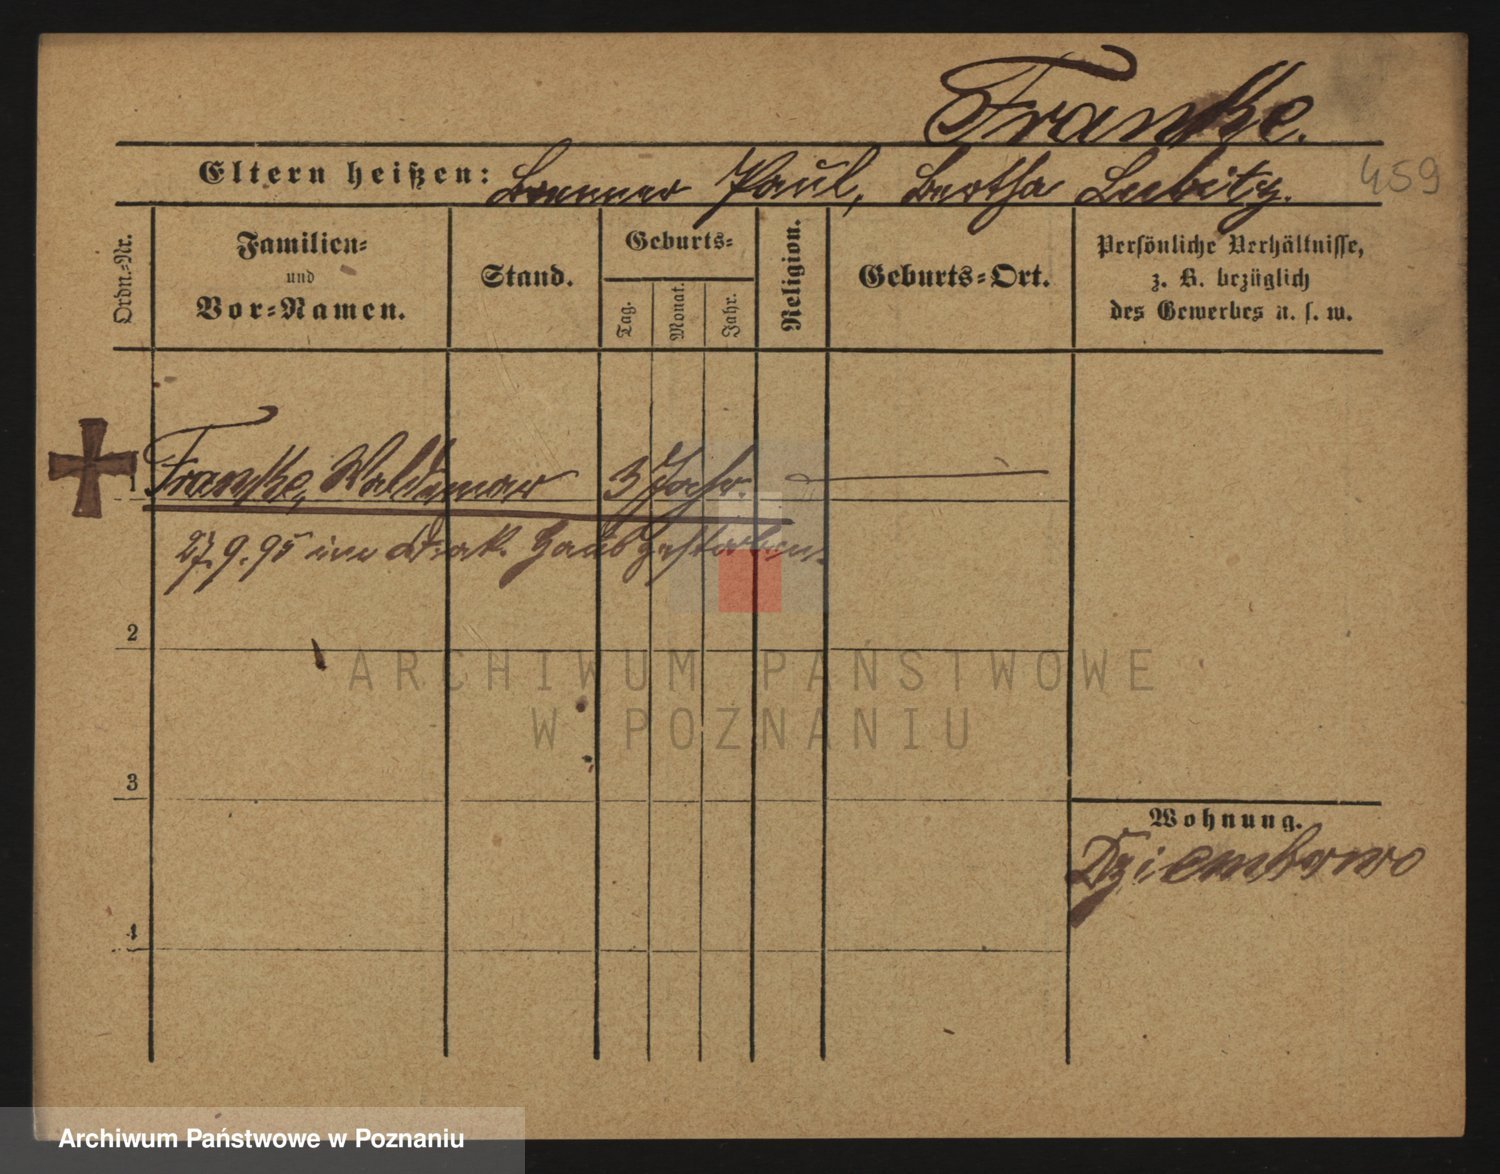 Franke.
459
Eltern heißen: Brenner Paul, Bertha Lubitz.
Ordn.-Nr.
Familien-
und
Vor-Namen.
Stand.
Geburts-
Tag.
Monat.
Jahr.
Religion.
Geburts-Ort.
Persönliche Verhältnisse,
z. B. bezüglich
des Gewerbes u. s. w.
1 Franke, Waldemar 3 Jahr.
27.9.95 im Diak. Haus gestorben.
2
ARCHIWUM PAŃSTWOWE
W POZNANIU
3
Wohnung.
Dziembowo
4
Archiwum Państwowe w Poznaniu